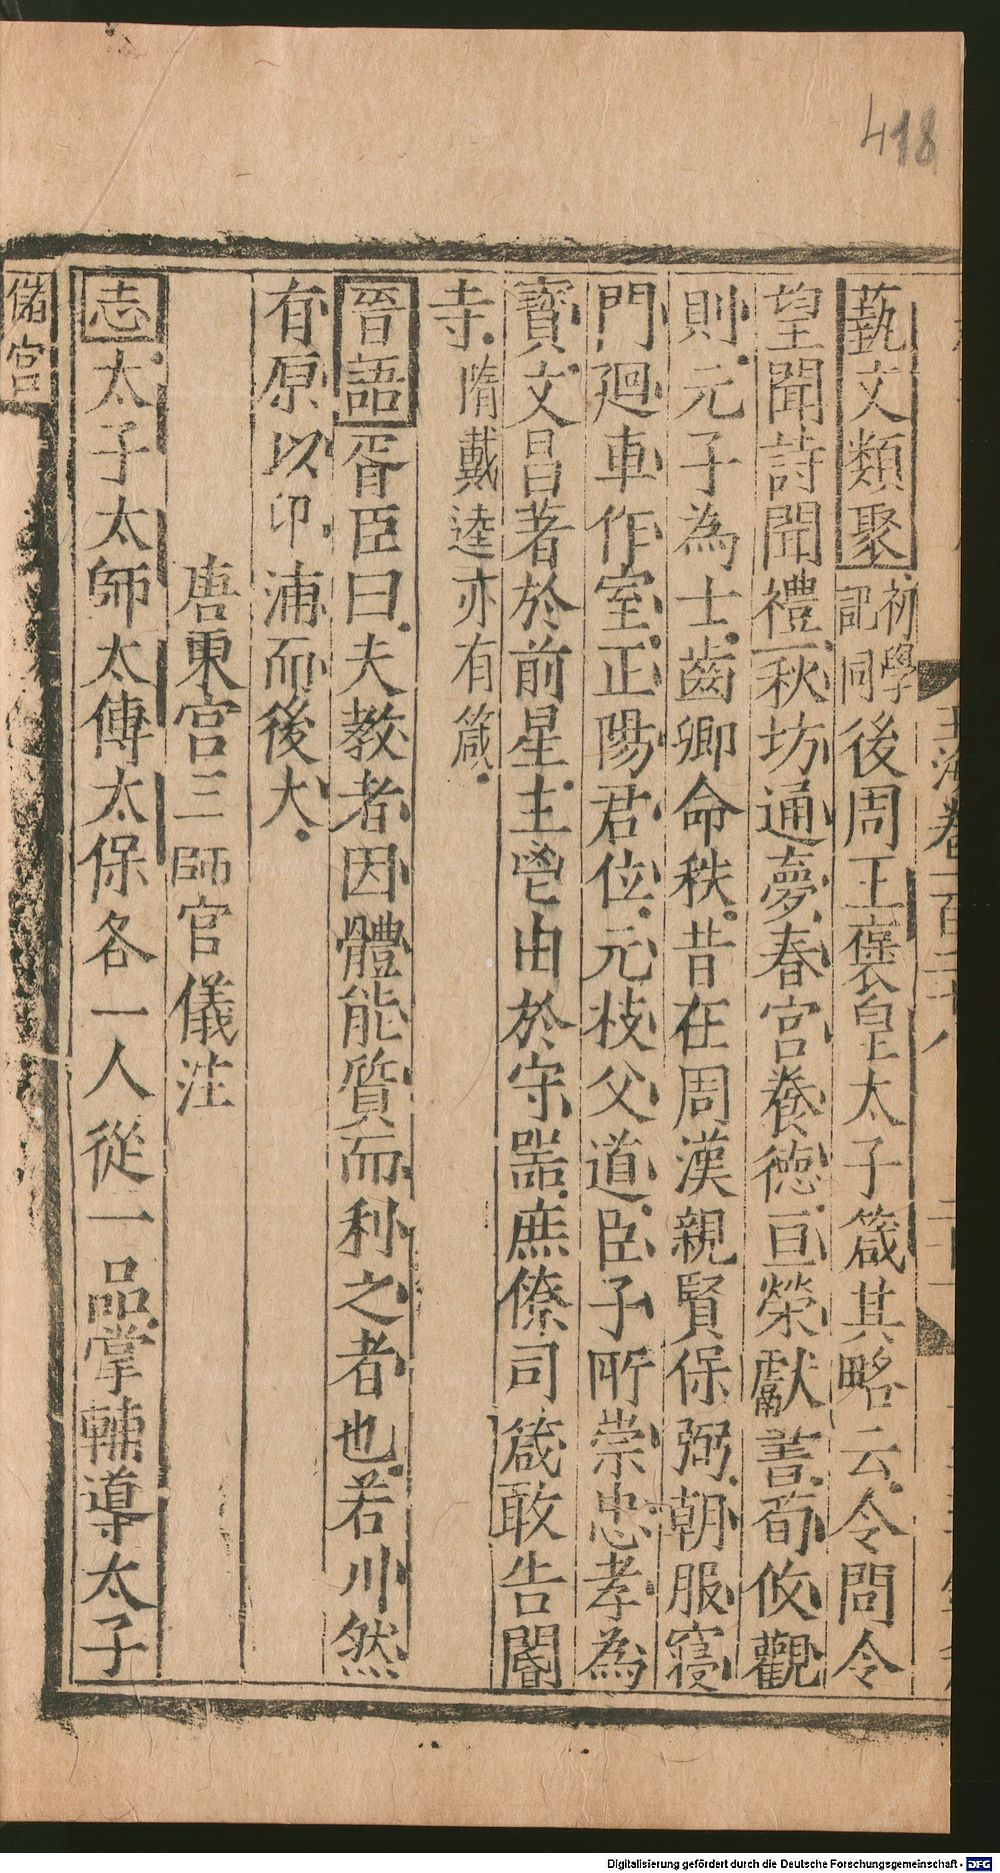 418
玉海卷一百二十八
藝文類聚初學記同後周王褒皇太子箴其略云令問令
望聞詩聞禮一秋坊通夢春宮養德亘榮獻書荀攸觀
則元子為士齒卿命秩昔在周漢親賢保弼朝服寢
門廻車作室正陽君位元枝父道臣子所崇忠孝為
寶文昌著於前星主鬯由於守器庶僚司箴敢告閽
寺隋戴逵亦有箴
晉語胥臣曰夫教者因體能質而利之者也若川然
有原以卬浦而後大
唐東宮三師官儀注
志太子太師太傅太保各一人從一品掌輔導太子
儲宮
Digitalisierung gefördert durch die Deutsche Forschungsgemeinschaft - DFG